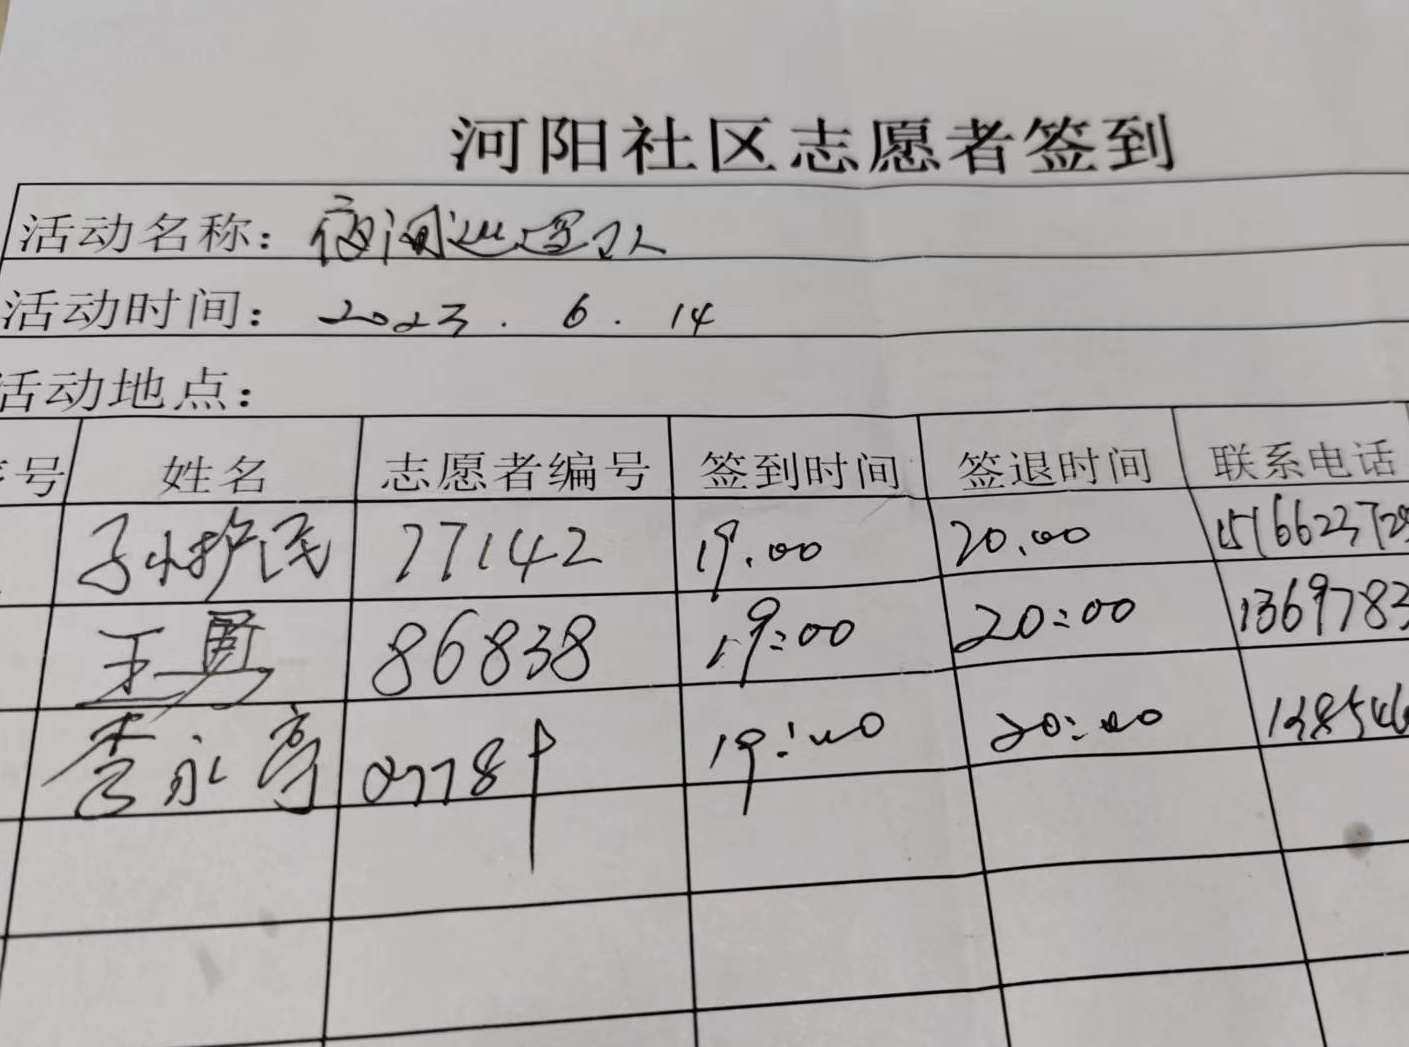 河阳社区志愿者签到
活动名称：夜间巡逻队
活动时间：2023.6.14
活动地点：
号 姓名 志愿者编号 签到时间 签退时间 联系电话
77142 19.00 20.00
王勇 86838 19:00 20:00 1369783
李永亭 19:00 20:00 138546